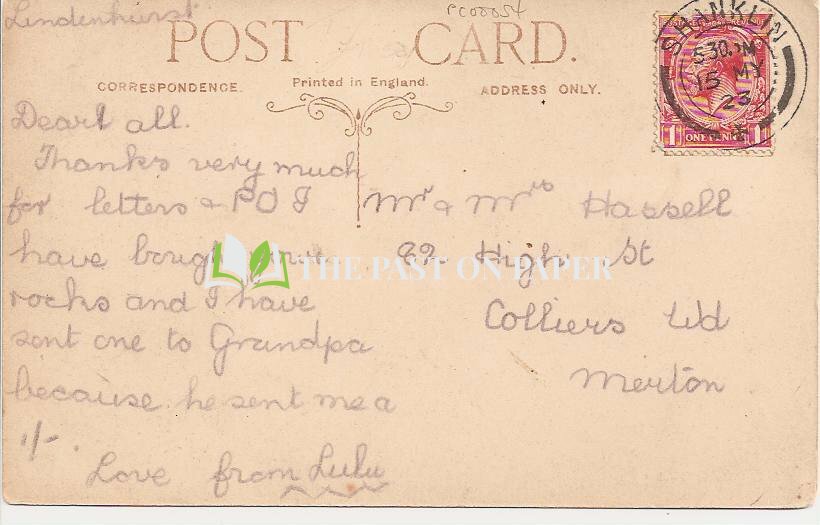 Lindenhurst
PC00054
POST CARD.
CORRESPONDENCE.
Printed in England.
ADDRESS ONLY.
SHANKLIN
5 30 PM
15 MY
23
ONE PENNY
1 1
Dear all.
Thanks very much
for letters & PO I
have bought
rocks and I have
sent one to Grandpa
because he sent me a
1/-.
Love from Lulu
Mr & Mrs Hassell
92 High St
Colliers Wd
Merton
THE PAST ON PAPER